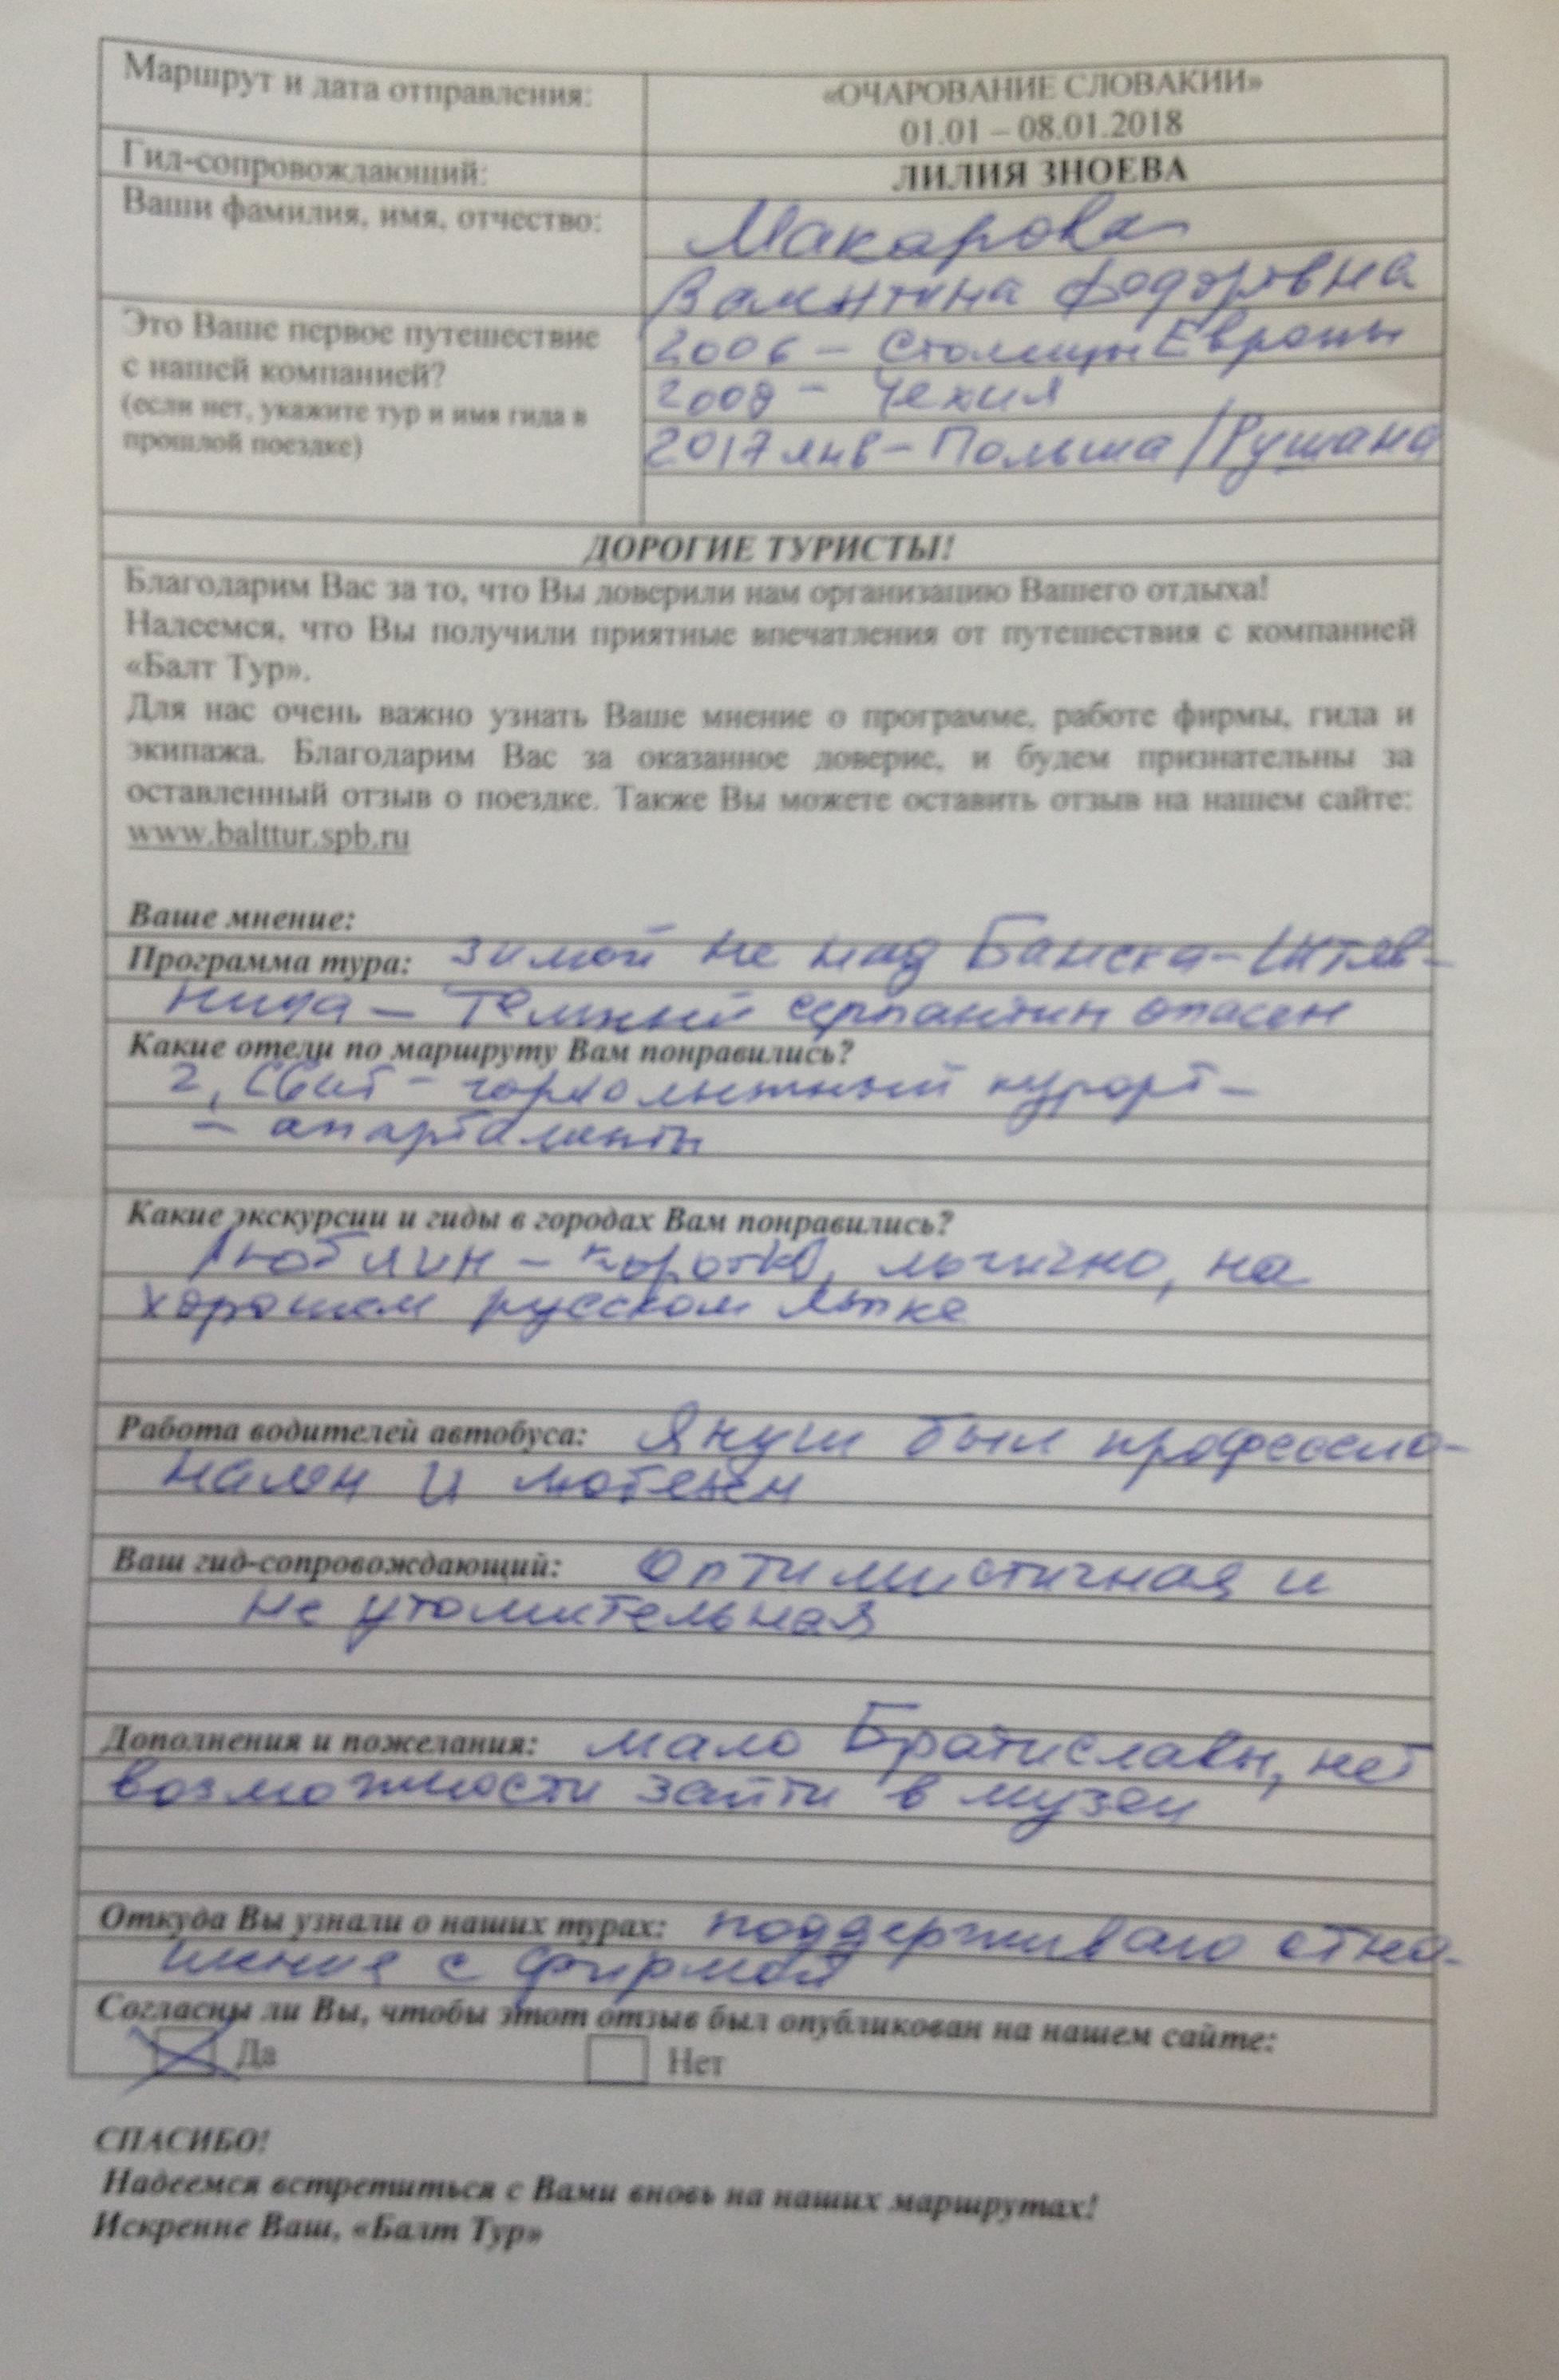 Маршрут и дата отправления:
«ОЧАРОВАНИЕ СЛОВАКИИ»
01.01 – 08.01.2018
Гид-сопровождающий:
ЛИЛИЯ ЗНОЕВА
Ваши фамилия, имя, отчество:
Макарова
Валентина Федоровна
Это Ваше первое путешествие
с нашей компанией?
(если нет, укажите тур и имя гида в
прошлой поездке)
2006 – Столицы Европы
2008 – Чехия
2017 янв – Польша /Рушана
ДОРОГИЕ ТУРИСТЫ!
Благодарим Вас за то, что Вы доверили нам организацию Вашего отдыха!
Надеемся, что Вы получили приятные впечатления от путешествия с компанией
«Балт Тур».
Для нас очень важно узнать Ваше мнение о программе, работе фирмы, гида и
экипажа. Благодарим Вас за оказанное доверие, и будем признательны за
оставленный отзыв о поездке. Также Вы можете оставить отзыв на нашем сайте:
www.balttur.spb.ru
Ваше мнение:
Программа тура: зимой не над Банска-Штяв-
ница – тёмный серпантин опасен
Какие отели по маршруту Вам понравились?
2, Свит – горнолыжный курорт –
– апартаменты
Какие экскурсии и гиды в городах Вам понравились?
Люблин – коротко, логично, на
хорошем русском языке
Работа водителей автобуса: Януш был профессио-
нален и любезен
Ваш гид-сопровождающий: оптимистичная и
не утомительная
Дополнения и пожелания: мало Братиславы, нет
возможности зайти в музеи
Откуда Вы узнали о наших турах: поддерживаю отно-
шения с фирмой
Согласны ли Вы, чтобы этот отзыв был опубликован на нашем сайте:
Да Нет
СПАСИБО!
Надеемся встретиться с Вами вновь на наших маршрутах!
Искренне Ваш, «Балт Тур»